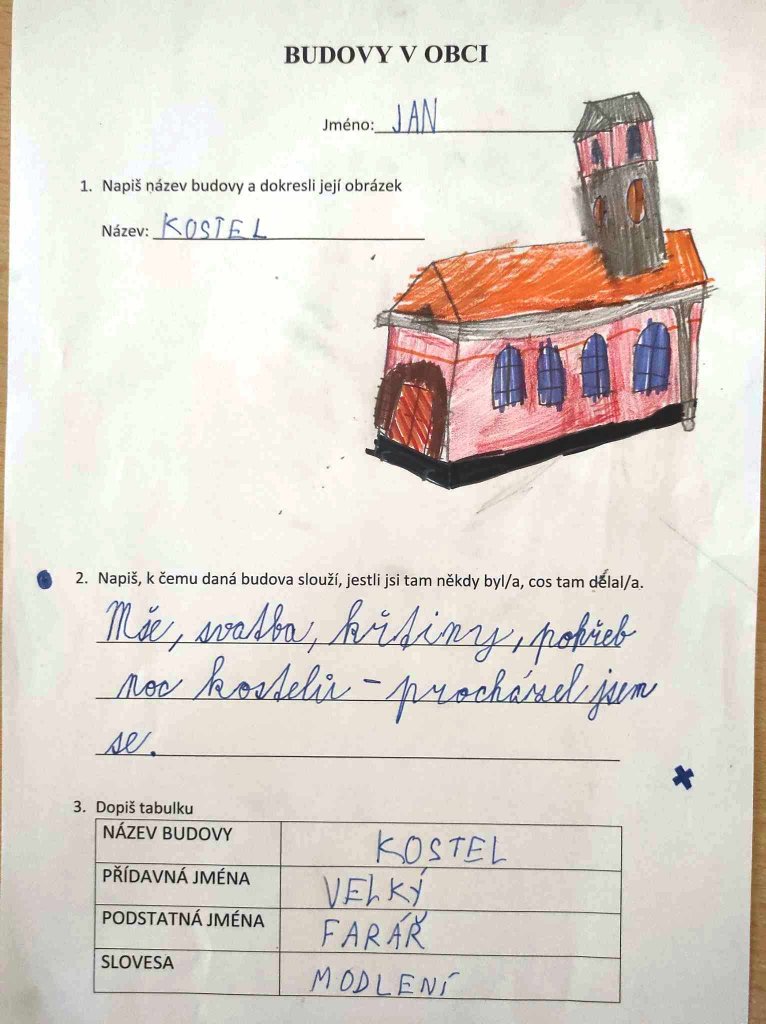 BUDOVY V OBCI
Jméno: JAN
1. Napiš název budovy a dokresli její obrázek
Název: KOSTEL
2. Napiš, k čemu daná budova slouží, jestli jsi tam někdy byl/a, cos tam dělal/a.
Mše, svatba, křtiny, pohřeb
noc kostelů – procházel jsem
se.
3. Dopiš tabulku
NÁZEV BUDOVY KOSTEL
PŘÍDAVNÁ JMÉNA VELKÝ
PODSTATNÁ JMÉNA FARÁŘ
SLOVESA MODLENÍ